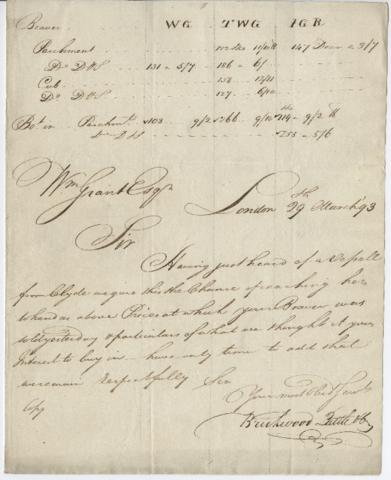 Beaver WG TWG IGR
Parchment 147 Do a 9/7
Do D & S 131 - 5/7 186 - 6/
Cub 138
Do D & S 127
Bot in Parchmt 108 9/2 266 9/10 114 - 9/2
Do D & S 255 - 5/6
Wm Grant Esqr
London 29th March 93
Sir
Having just heard of a Vessell
from Clyde we give this the Chance of reaching her
above Prices at which your Beaver was
sold yesterday & particulars of what we thought it your
Interest to buy in – have only time to add that
we remain respectfully Sir
Your most Obed Servts
Copy
Brickwood Pattle & Co